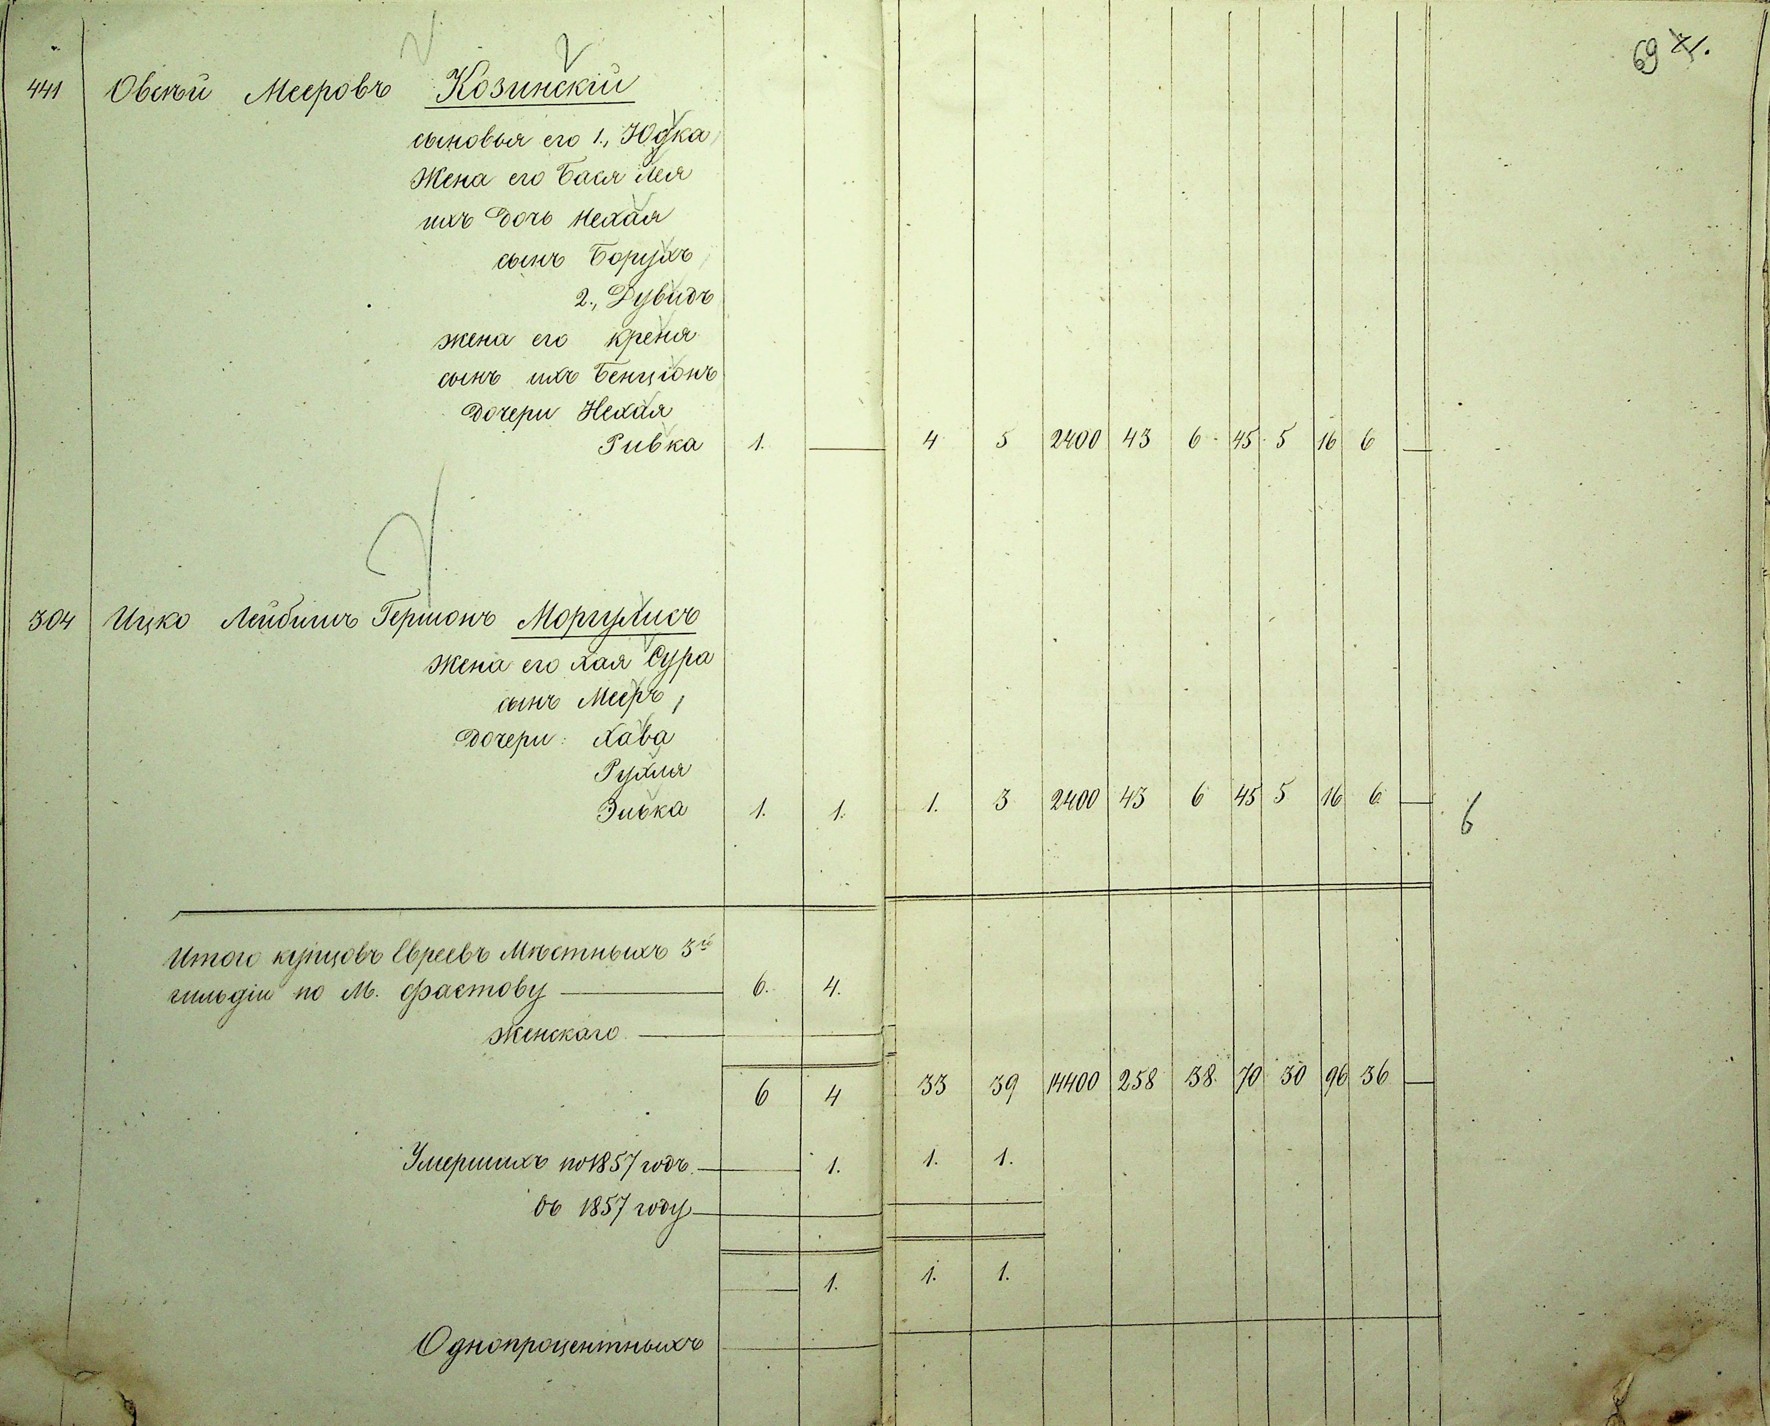 69 71.
441 Овсѣй Мееровъ Козинскій
сыновья его 1., Юдка
Жена его Бася Лея
ихъ дочь Нехая
сынъ Борухъ
2., Дувидъ
жена его Креня
сынъ ихъ Бенціонъ
дочери Нехая
Ривка 1. — 4 5 2400 43 6 45 5 16 6 —
304 Ицко Лейбишъ Гершонъ Моргулисъ
Жена его Хая Сура
сынъ Мееръ,
дочери: Хава
Рухля
Элька 1. 1. 1. 3 2400 43 6 45 5 16 6 — 6
Итого купцовъ Евреевъ Мѣстныхъ 3й
гильдіи по М. Фастову — 6. 4.
Женскаго —
6 4 33 39 14400 258 38 70 30 96 36 —
Умершихъ по 1857 годъ — 1. 1. 1.
въ 1857 году —
— 1. 1. 1.
Однопроцентныхъ —